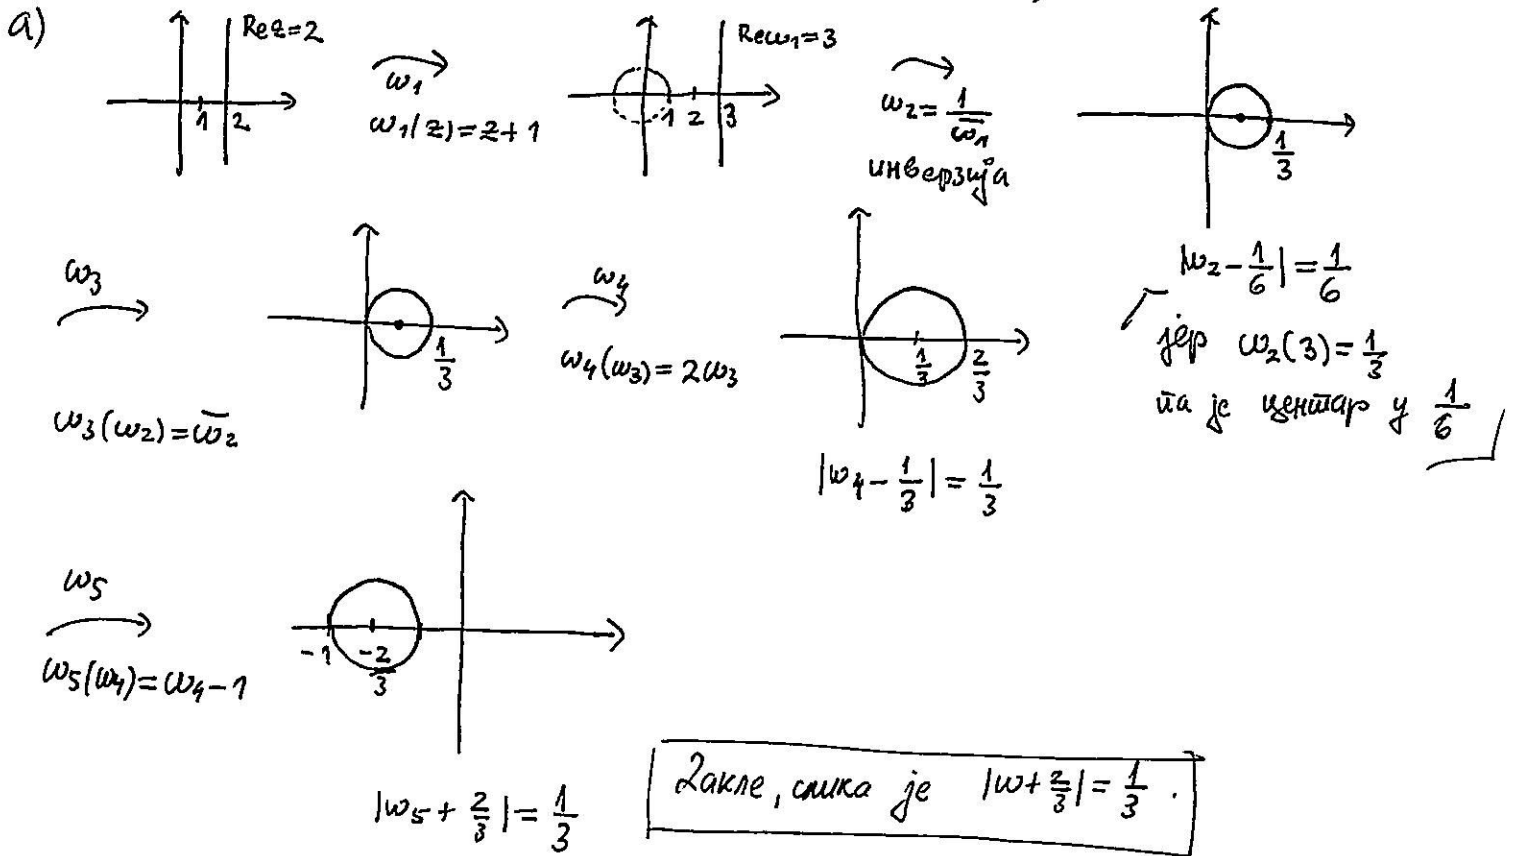 а)
Re z=2
1 2
ω₁
ω₁(z)=z+1
Re ω₁=3
1 2 3
ω₂=\frac{1}{\overline{ω₁}}
инверзија
\frac{1}{3}
|ω₂-\frac{1}{6}|=\frac{1}{6}
јер ω₂(3)=\frac{1}{3}
па је центар у \frac{1}{6}
ω₃
ω₃(ω₂)=\overline{ω₂}
\frac{1}{3}
ω₄
ω₄(ω₃)=2ω₃
\frac{1}{3} \frac{2}{3}
|ω₄-\frac{1}{3}|=\frac{1}{3}
ω₅
ω₅(ω₄)=ω₄-1
-1 \frac{-2}{3}
|ω₅+\frac{2}{3}|=\frac{1}{3}
Дакле, слика је |ω+\frac{2}{3}|=\frac{1}{3}.